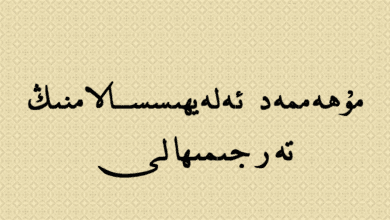 مۇھەممەد ئەلەيھىسسالامنىڭ
تەرجىمىھالى